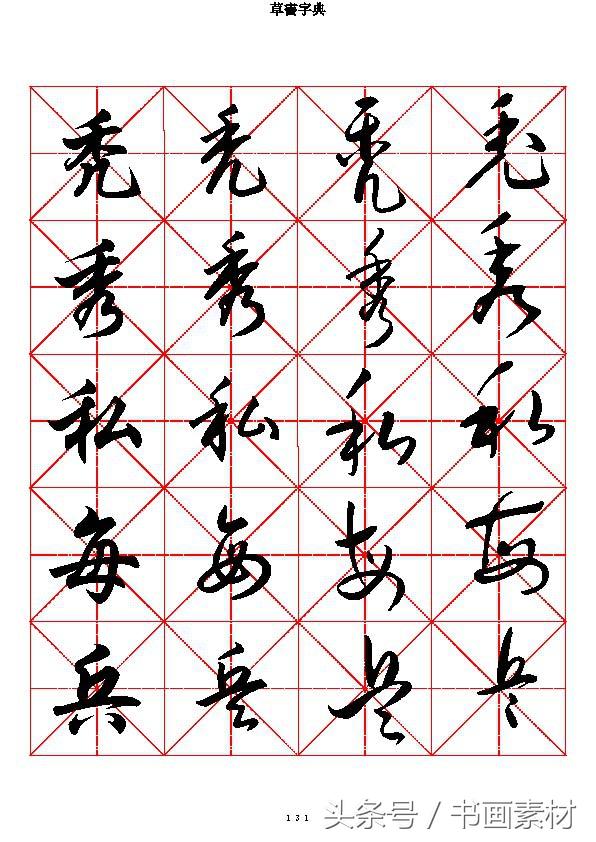 草書字典
秃 秃 秃 秃
秀 秀 秀 秀
私 私 私 私
每 每 每 每
兵 兵 兵 兵
131
头条号 / 书画素材